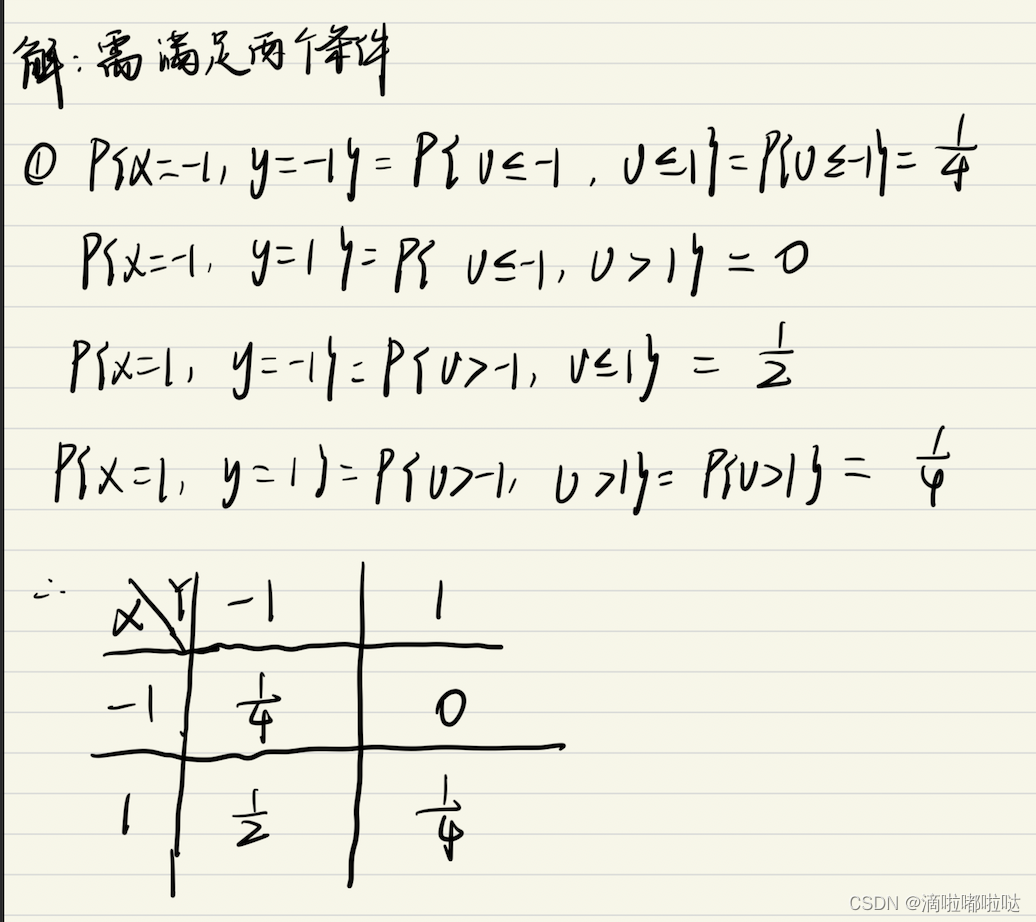 解：需满足两个条件
① P{X=-1, y=-1} = P{U≤-1, U≤1} = P{U≤-1} = 1/4
P{X=-1, y=1} = P{U≤-1, U>1} = 0
P{X=1, y=-1} = P{U>-1, U≤1} = 1/2
P{X=1, y=1} = P{U>-1, U>1} = P{U>1} = 1/4
∴ X\Y -1 1
-1 1/4 0
1 1/2 1/4
CSDN @滴啦嘟啦哒